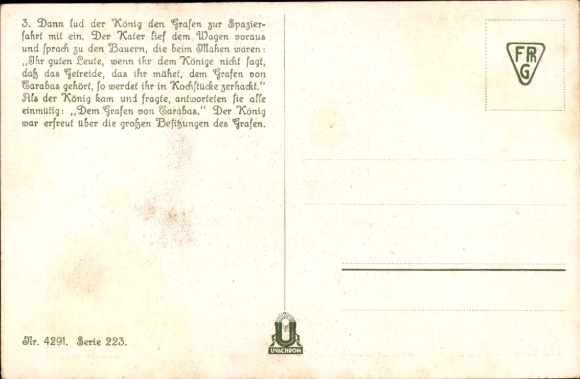 3. Dann lud der König den Grafen zur Spazier-
fahrt mit ein. Der Kater lief dem Wagen voraus
und sprach zu den Bauern, die beim Mähen waren:
„Ihr guten Leute, wenn ihr dem Könige nicht sagt,
daß das Getreide, das ihr mähet, dem Grafen von
Carabas gehört, so werdet ihr in Kochstücke zerhackt.“
Als der König kam und fragte, antworteten sie alle
einmütig: „Dem Grafen von Carabas.“ Der König
war erfreut über die großen Besitzungen des Grafen.
FR
G
Nr. 4291. Serie 223.
U
UVACHROM